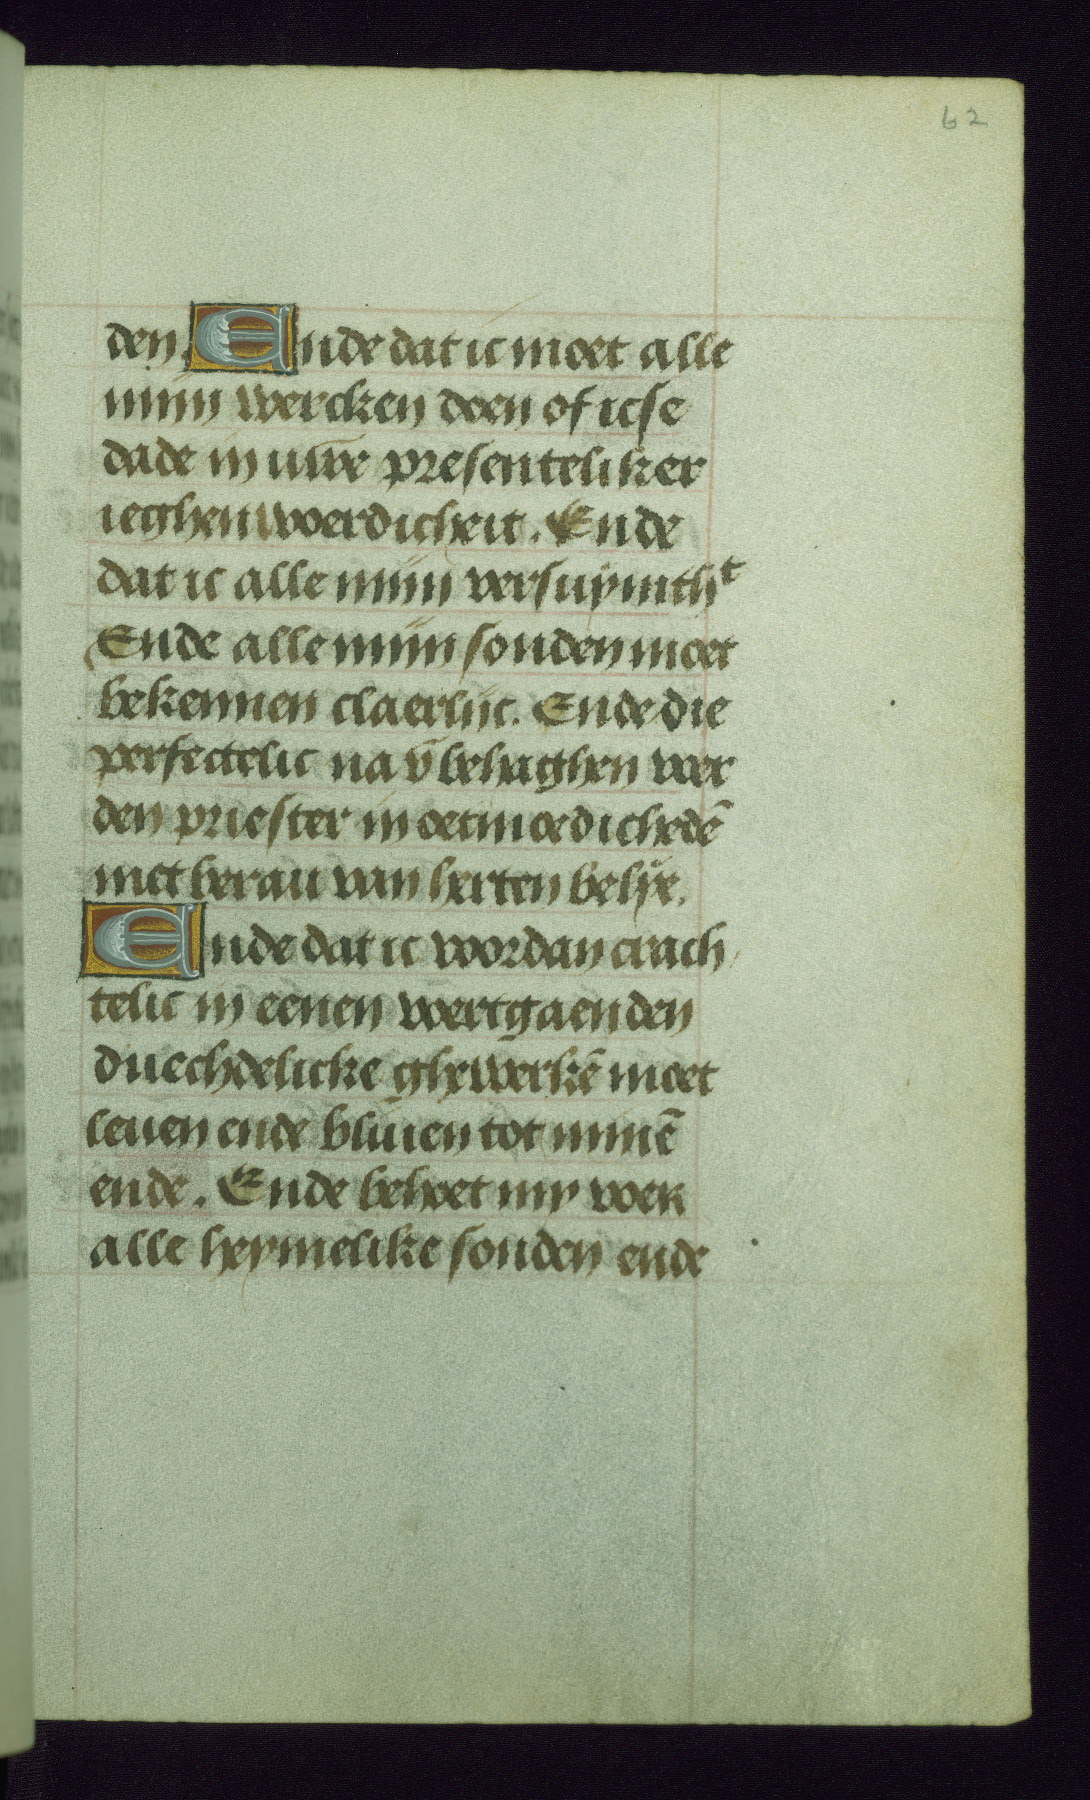 62
den. Ende dat ic moet alle
mijn wercken doen of icse
dade in uwe presenteliker
ieghenwoerdicheit. Ende
dat ic alle mijn versuymthᵗ
Ende alle mijn sonden moet
bekennen claerlijc. Ende die
perfectelic na v̄ behaghen voer
den priester in oetmoedichedē
met berau van herten belye.
Ende dat ic voordan crach
telic in eenen voertgaenden
duechdelicke ghewerkē moet
leuen ende bliuen tot minē
ende. Ende behoet my voer
alle heymelike sonden ende